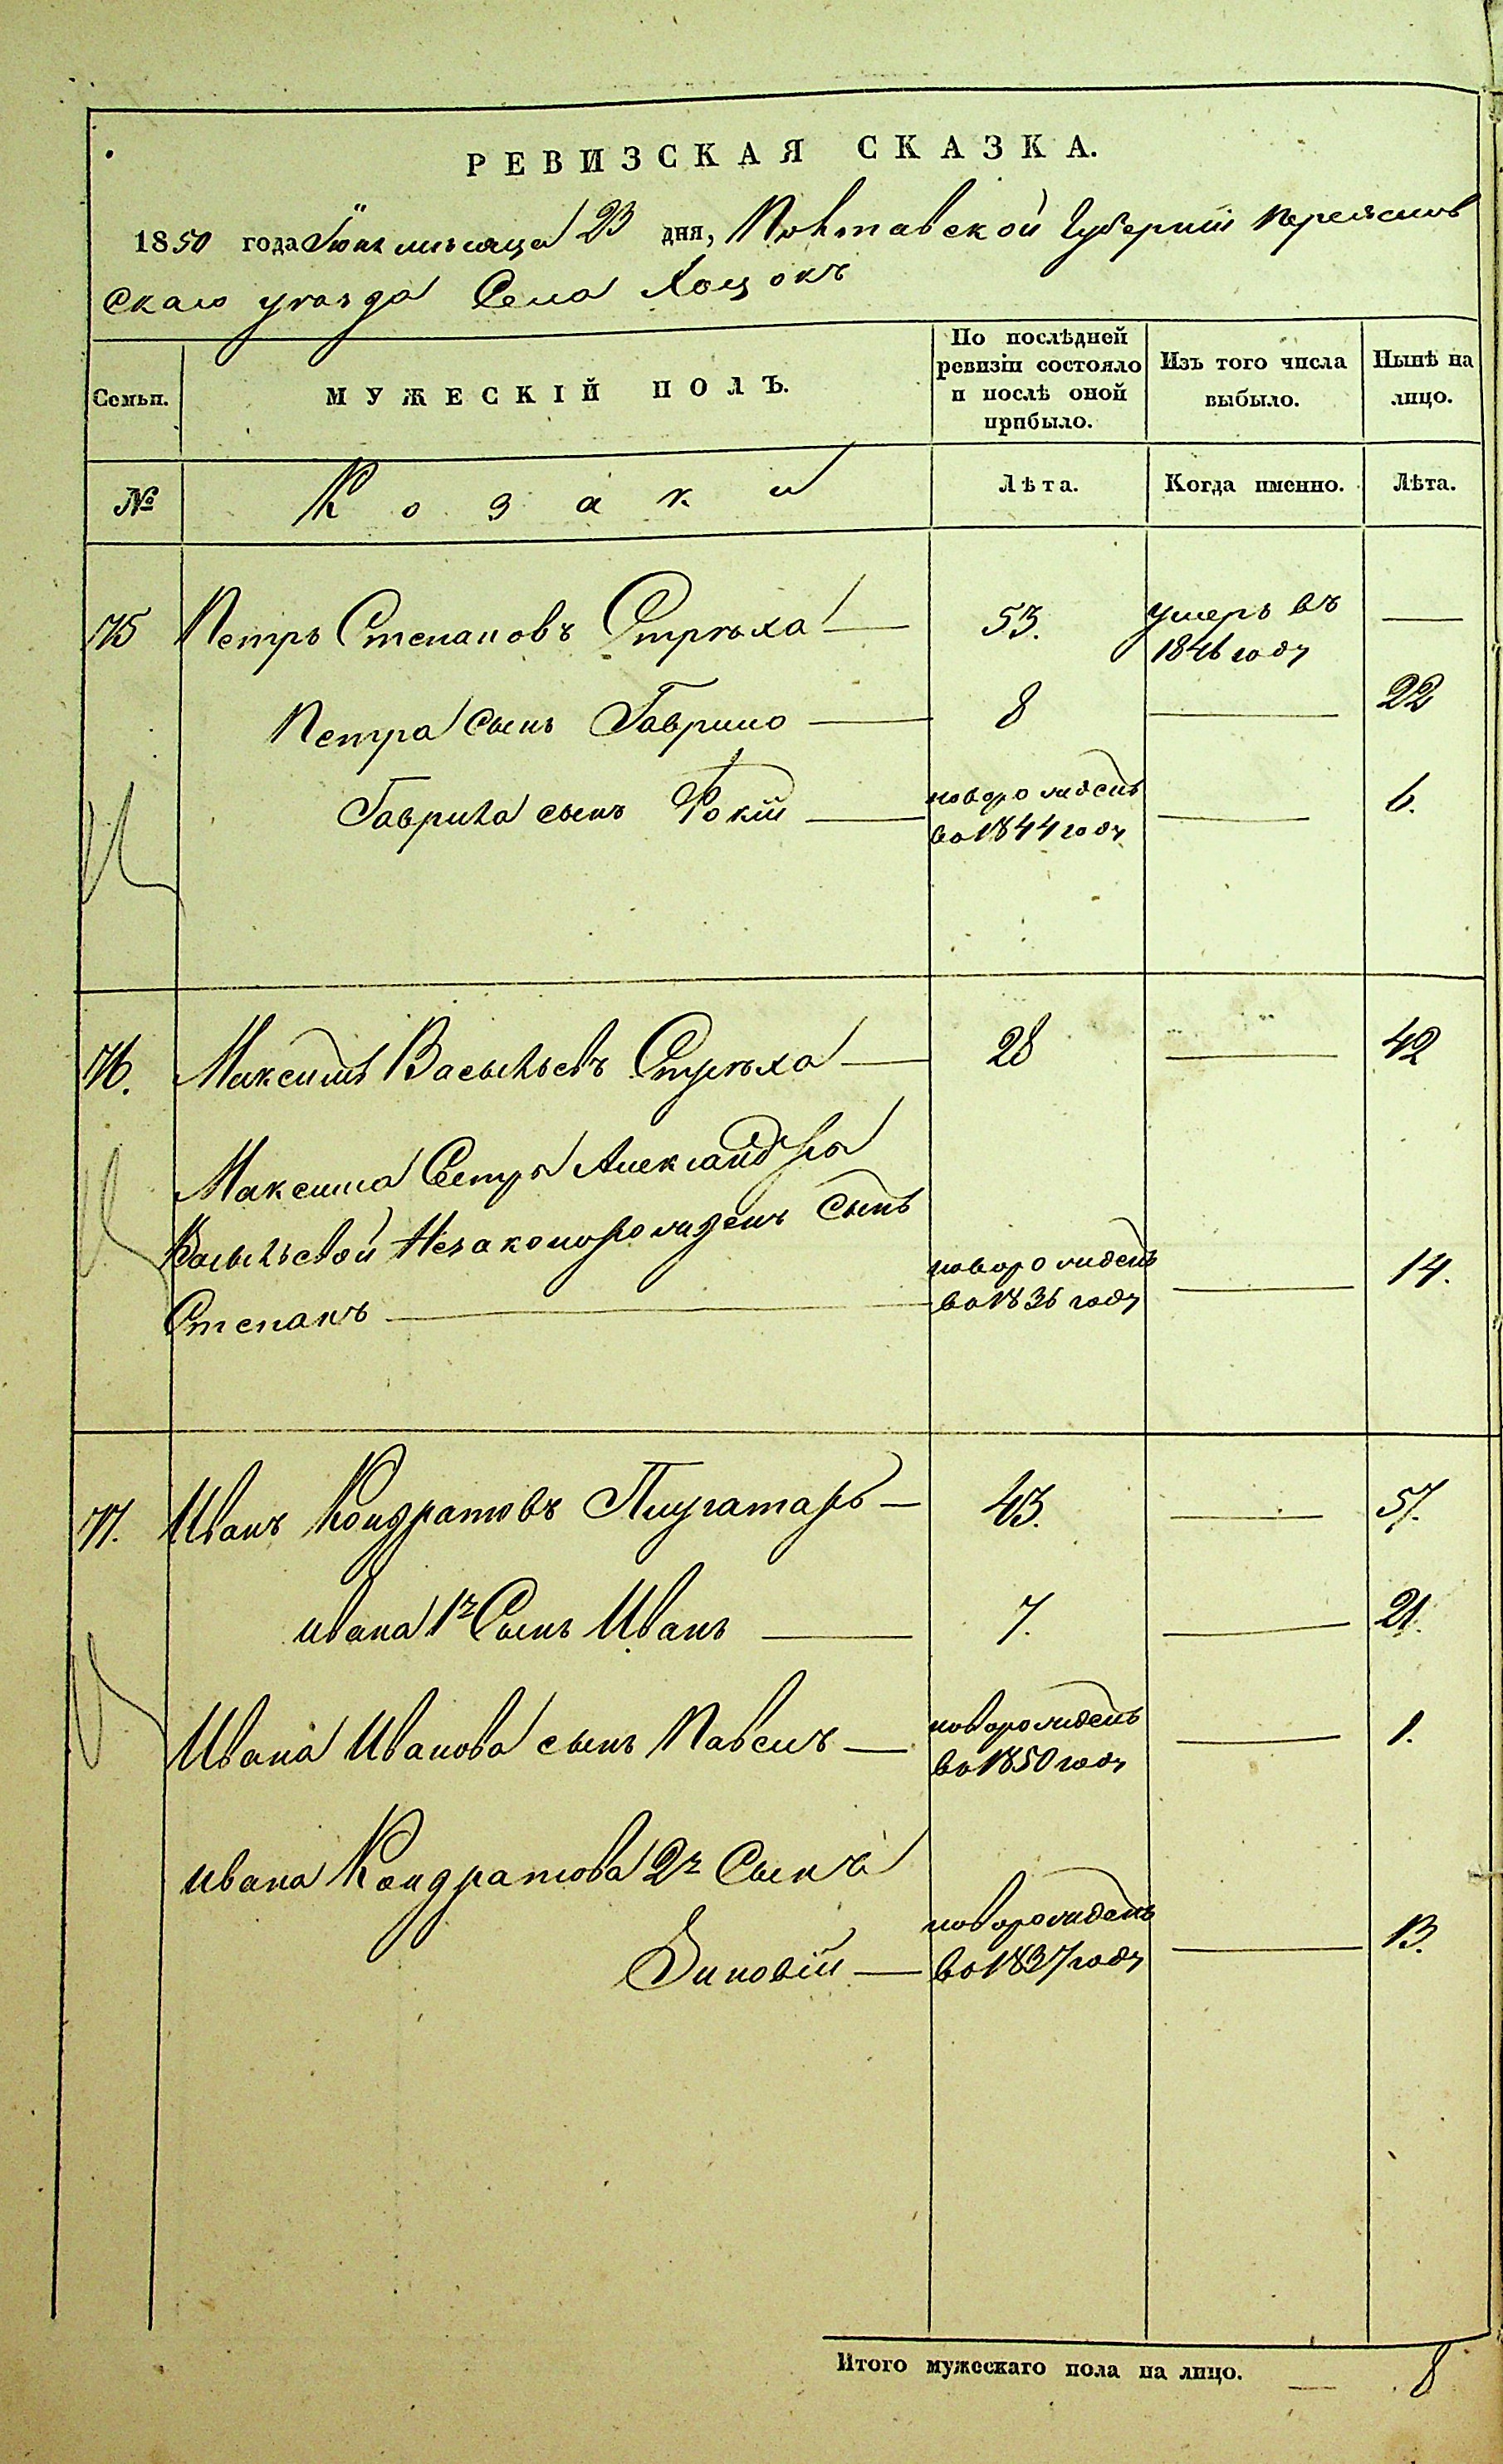 РЕВИЗСКАЯ СКАЗКА.
1850 года Іюня мѣсяца 23 дня, Полтавской Губерніи Переяслов
скаго уѣзда Села Хоцокъ
Семьи.
МУЖЕСКІЙ ПОЛЪ.
По послѣдней ревизіи состояло и послѣ оной прибыло.
Изъ того числа выбыло.
Нынѣ на лицо.
№
Козаки
Лѣта.
Когда именно.
Лѣта.
75 Петръ Степановъ Стрѣха — 53. умеръ въ —
1846 году
Петра сынъ Гаврило — 8 — 22
Гаврила сынъ Фокій — новорожденъ — 6.
во 1844 году
76. Максимъ Васильевъ Стрѣха — 28 — 42
Максима Сестры Александры
Васильевой Незаконорожденъ Сынъ
Степанъ — новорожденъ — 14.
во 1836 году
77. Иванъ Кондратовъ Плугатарь — 43. — 57.
Ивана 1й Сынъ Иванъ — 7. — 21.
Ивана Иванова сынъ Павелъ — новорожденъ — 1.
во 1850 году
Ивана Кондратова 2й Сынъ
Зиновій — новорожденъ — 13.
во 1837 году
Итого мужескаго пола на лицо. — 8